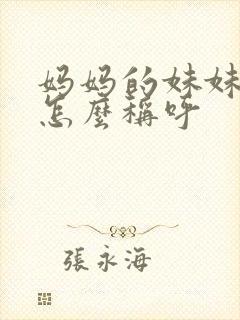 妈妈的妹妹
怎麼稱呼
張永海